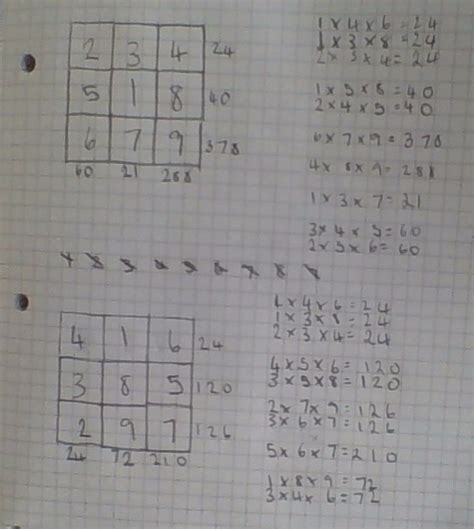 2 3 4 24
5 1 8 40
6 7 9 378
60 21 288
1 x 4 x 6 = 24
1 x 3 x 8 = 24
2 x 3 x 4 = 24
1 x 5 x 8 = 40
2 x 4 x 5 = 40
6 x 7 x 9 = 378
4 x 8 x 9 = 288
1 x 3 x 7 = 21
3 x 4 x 5 = 60
2 x 5 x 6 = 60
4 1 6 24
3 8 5 120
2 9 7 126
24 72 210
1 x 4 x 6 = 24
1 x 3 x 8 = 24
2 x 3 x 4 = 24
4 x 5 x 6 = 120
3 x 5 x 8 = 120
2 x 7 x 9 = 126
3 x 6 x 7 = 126
5 x 6 x 7 = 210
1 x 8 x 9 = 72
3 x 4 x 6 = 72